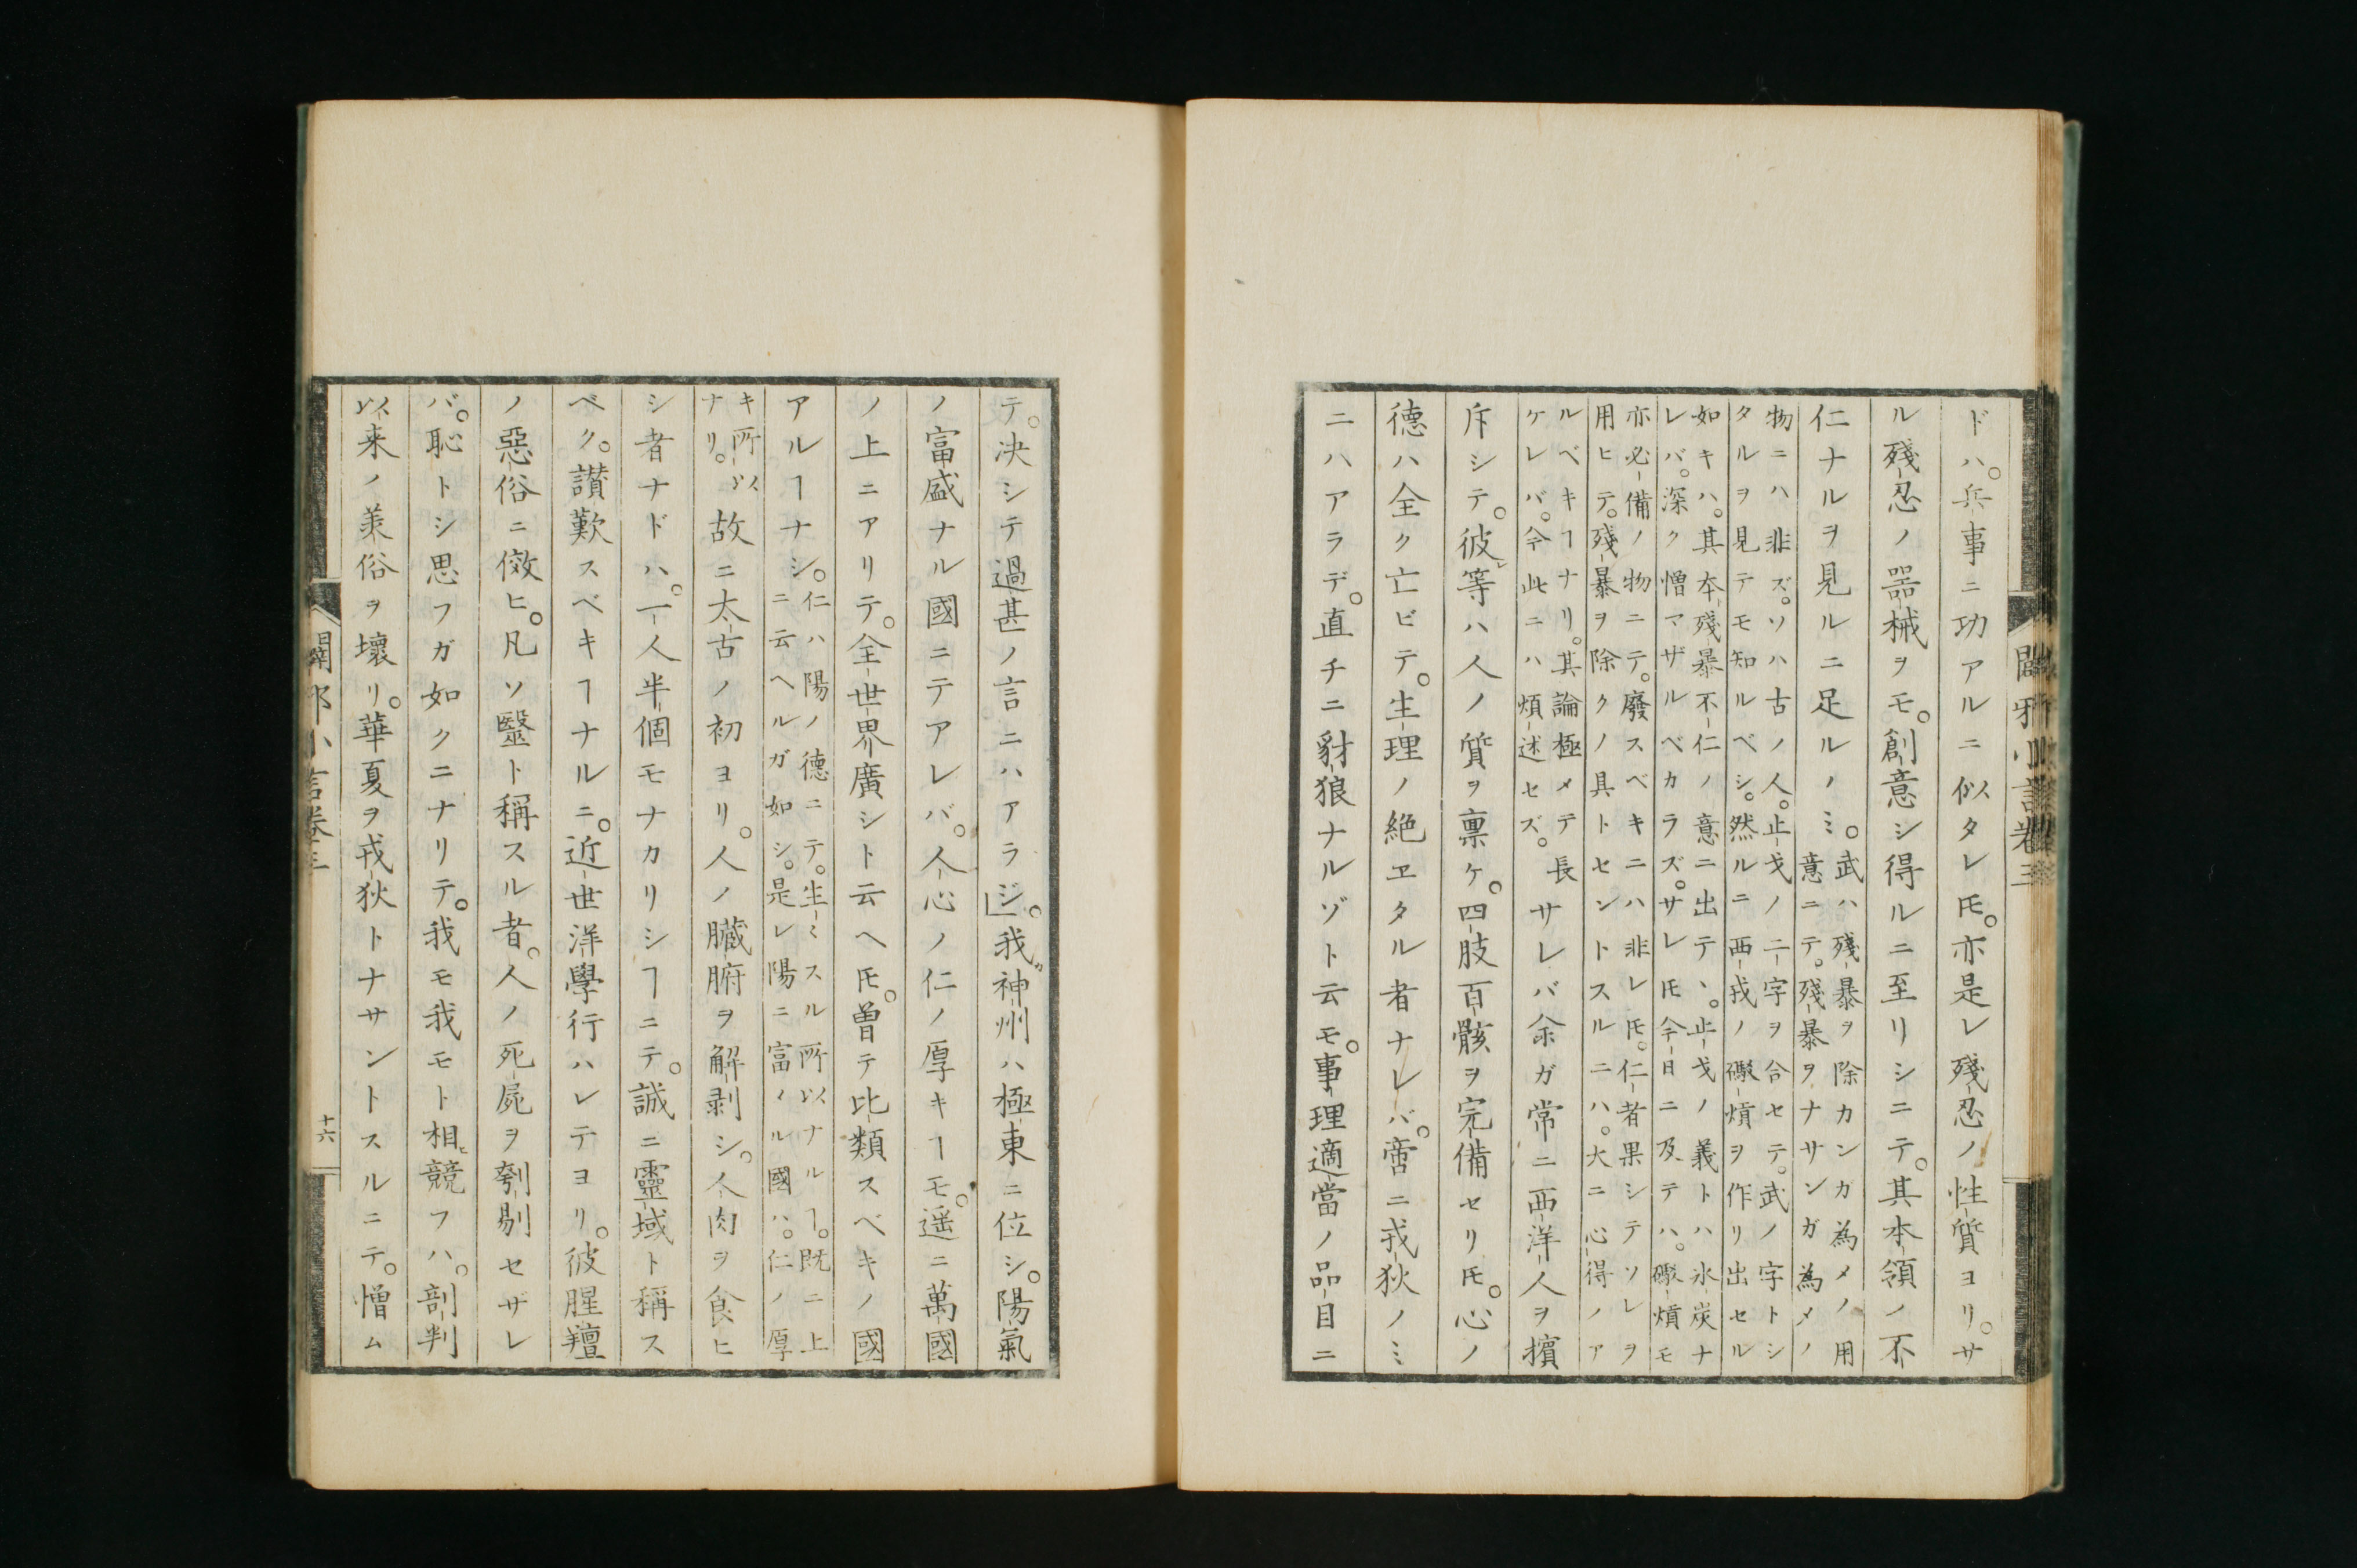 ドハ。兵事ニ功アルニ似タレ𪜈。亦是レ殘忍ノ性質ヨリ。サ
ル殘忍ノ器械ヲモ。創意シ得ルニ至リシニテ。其本領ノ不
仁ナルヲ見ルニ足ルノミ。武ハ殘暴ヲ除カンカ為メノ用
意ニテ。殘暴ヲナサンガ為メノ
物ニハ非ズ。ソハ古ノ人。止戈ノ二字ヲ合セテ。武ノ字トシ
タルヲ見テモ知ルベシ。然ルニ西戎ノ礮熕ヲ作リ出セル
如キハ。其本殘暴不仁ノ意ニ出テヽ。止戈ノ義トハ氷炭ナ
レバ。深ク憎マザルベカラズ。サレ𪜈今日ニ及テハ。礮熕モ
亦必備ノ物ニテ。廢スベキニハ非レ𪜈。仁者果シテソレヲ
用ヒテ。殘暴ヲ除クノ具トセントスルニハ。大ニ心得ノア
ルベキヿナリ。其論極メテ長
ケレバ。今此ニハ煩述セズ。サレバ余ガ常ニ西洋人ヲ擯
斥シテ。彼等ハ人ノ質ヲ稟ケ。四肢百骸ヲ完備セリ𪜈。心ノ
德ハ全ク亡ビテ。生理ノ絶ヱタル者ナレバ。啻ニ戎狄ノミ
ニハアラデ。直チニ豺狼ナルゾト云モ。事理適當ノ品目ニ
テ。決シテ過甚ノ言ニハアラジ。我神州ハ極東ニ位シ。陽氣
ノ富盛ナル國ニテアレバ。人心ノ仁ノ厚キヿモ。遥ニ萬國
ノ上ニアリテ。全世界廣シト云ヘ𪜈。曽テ比類スベキノ國
アルヿナシ。仁ハ陽ノ德ニテ。生〻スル所以ナルヿ。既ニ上
ニ云ヘルガ如シ。是レ陽ニ富メル國ハ。仁ノ厚
キ所以
ナリ。故ニ太古ノ初ヨリ。人ノ臓腑ヲ解剥シ。人肉ヲ食ヒ
シ者ナドハ。一人半個モナカリシヿニテ。誠ニ靈域ト稱ス
ベク。讃歎スベキヿナルニ。近世洋學行ハレテヨリ。彼腥羶
ノ惡俗ニ傚ヒ。凡ソ毉ト稱スル者。人ノ死屍ヲ刳剔セザレ
バ。恥トシ思フガ如クニナリテ。我モ我モト相競フハ。剖判
以来ノ美俗ヲ壞リ。華夏ヲ戎狄トナサントスルニテ。憎ム
闢邪小言卷三
十六